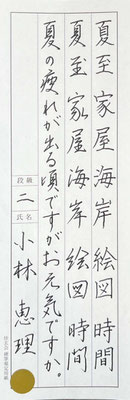 夏至 家屋 海岸 絵図 時間
夏至 家屋 海岸 絵図 時間
夏の疲れが出る頃ですがお元気ですか。
段級 二 氏名 小林 恵理